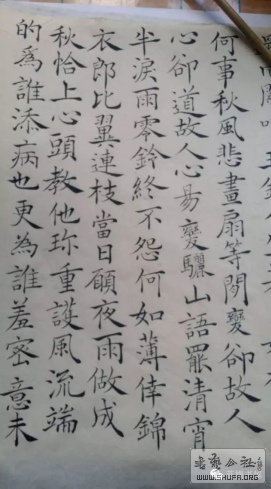 何事秋風悲畫扇等閒變卻故人
心卻道故人心易變驪山語罷清宵
半淚雨零鈴終不怨何如薄倖錦
衣郎比翼連枝當日願夜雨做成
秋恰上心頭教他珍重護風流端
的為誰添病也更為誰羞密意未
公社
WWW.SHUFA.ORG